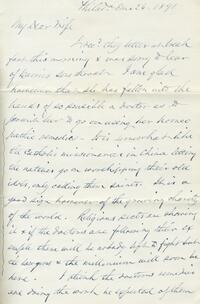 Philad Dec 26 1891
My Dear Wife
Rec'd thy letter at break
fast this morning & was sorry to hear
of throat. I am glad
however that she has fallen into the
hands of so sensible a doctor as to
permit her to go on using her homeo
pathic remedies. It is somewhat like
the Catholic missionaries in China letting
the natives go on worshipping their old
idols, only calling them saints. It is a
good sign however of the growing charity
of the world. Religious sects are showing
it & if the doctors are following their ex
ample there will be nobody left to fight but
the lawyers & the millennium will soon be
here. I think the doctors remedies
are doing the work he expected of them